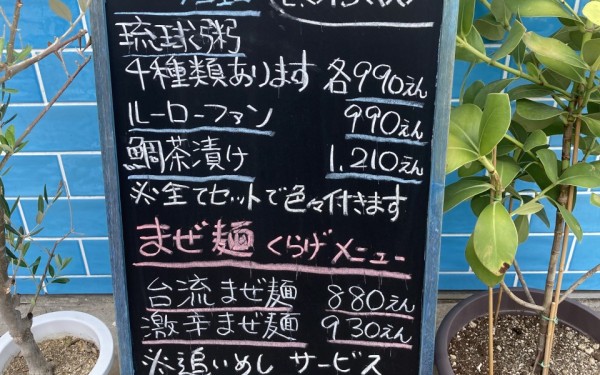 メニュー
琉球粥
4種類あります 各990えん
ルーローファン 990えん
鯛茶漬け 1,210えん
※全てセットで色々付きます
まぜ麺 くらげメニュー
台流まぜ麺 880えん
激辛まぜ麺 930えん
※追いめし サービス